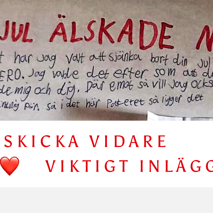 JUL ÄLSKADE N
t har jag valt att skänka bort din jul
ERO. Jag valde det efter som att d
de mig och dig. Däremot så vill jag ocks
pån, så i det här Patteret så ligger det
SKICKA VIDARE
❤️ VIKTIGT INLÄGG